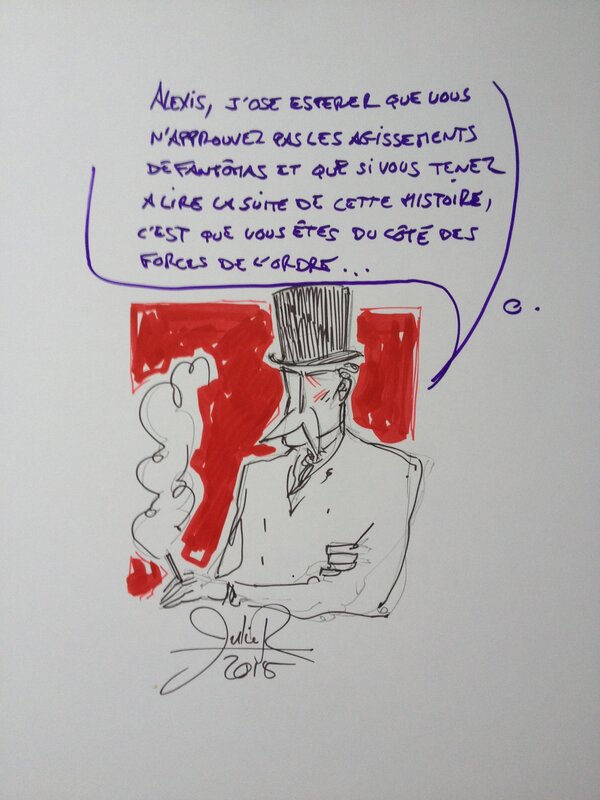 ALEXIS, J'OSE ESPERER QUE VOUS
N'APPROUVEZ PAS LES AGISSEMENTS
DE FANTÔMAS ET QUE SI VOUS TENEZ
A LIRE LA SUITE DE CETTE HISTOIRE,
C'EST QUE VOUS ÊTES DU CÔTÉ DES
FORCES DE L'ORDRE...
O.
Julie R
2015